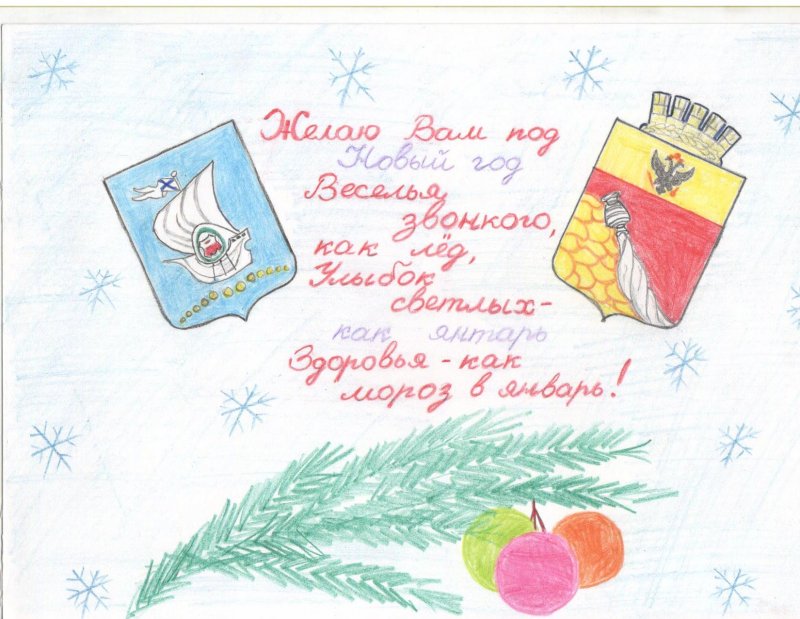 Желаю Вам под
Новый год
Веселья
звонкого,
как лёд,
Улыбок
светлых-
как янтарь
Здоровья - как
мороз в январь!